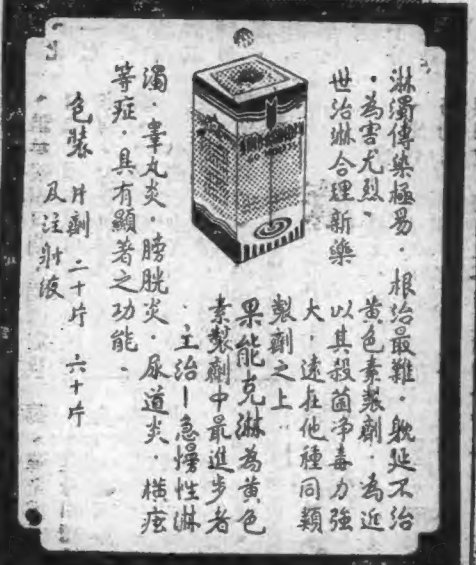 淋濁傳染極易．根治最難．躭延不治
．為害尤烈、黃色素製劑．為近
世治淋合理新藥 以其殺菌淨毒力強
大．遠在他種同類
製劑之上
果能克淋為黃色
素製劑中最進步者
．主治－急慢性淋
濁．睾丸炎．膀胱炎．尿道炎．橫痃
等症．具有顯著之功能．
包裝 片劑 二十片 六十片
及注射液